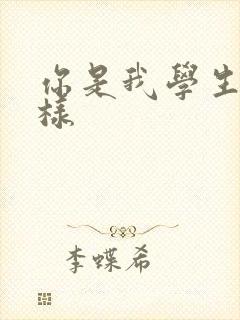 你是我學生
樣
李蝶希